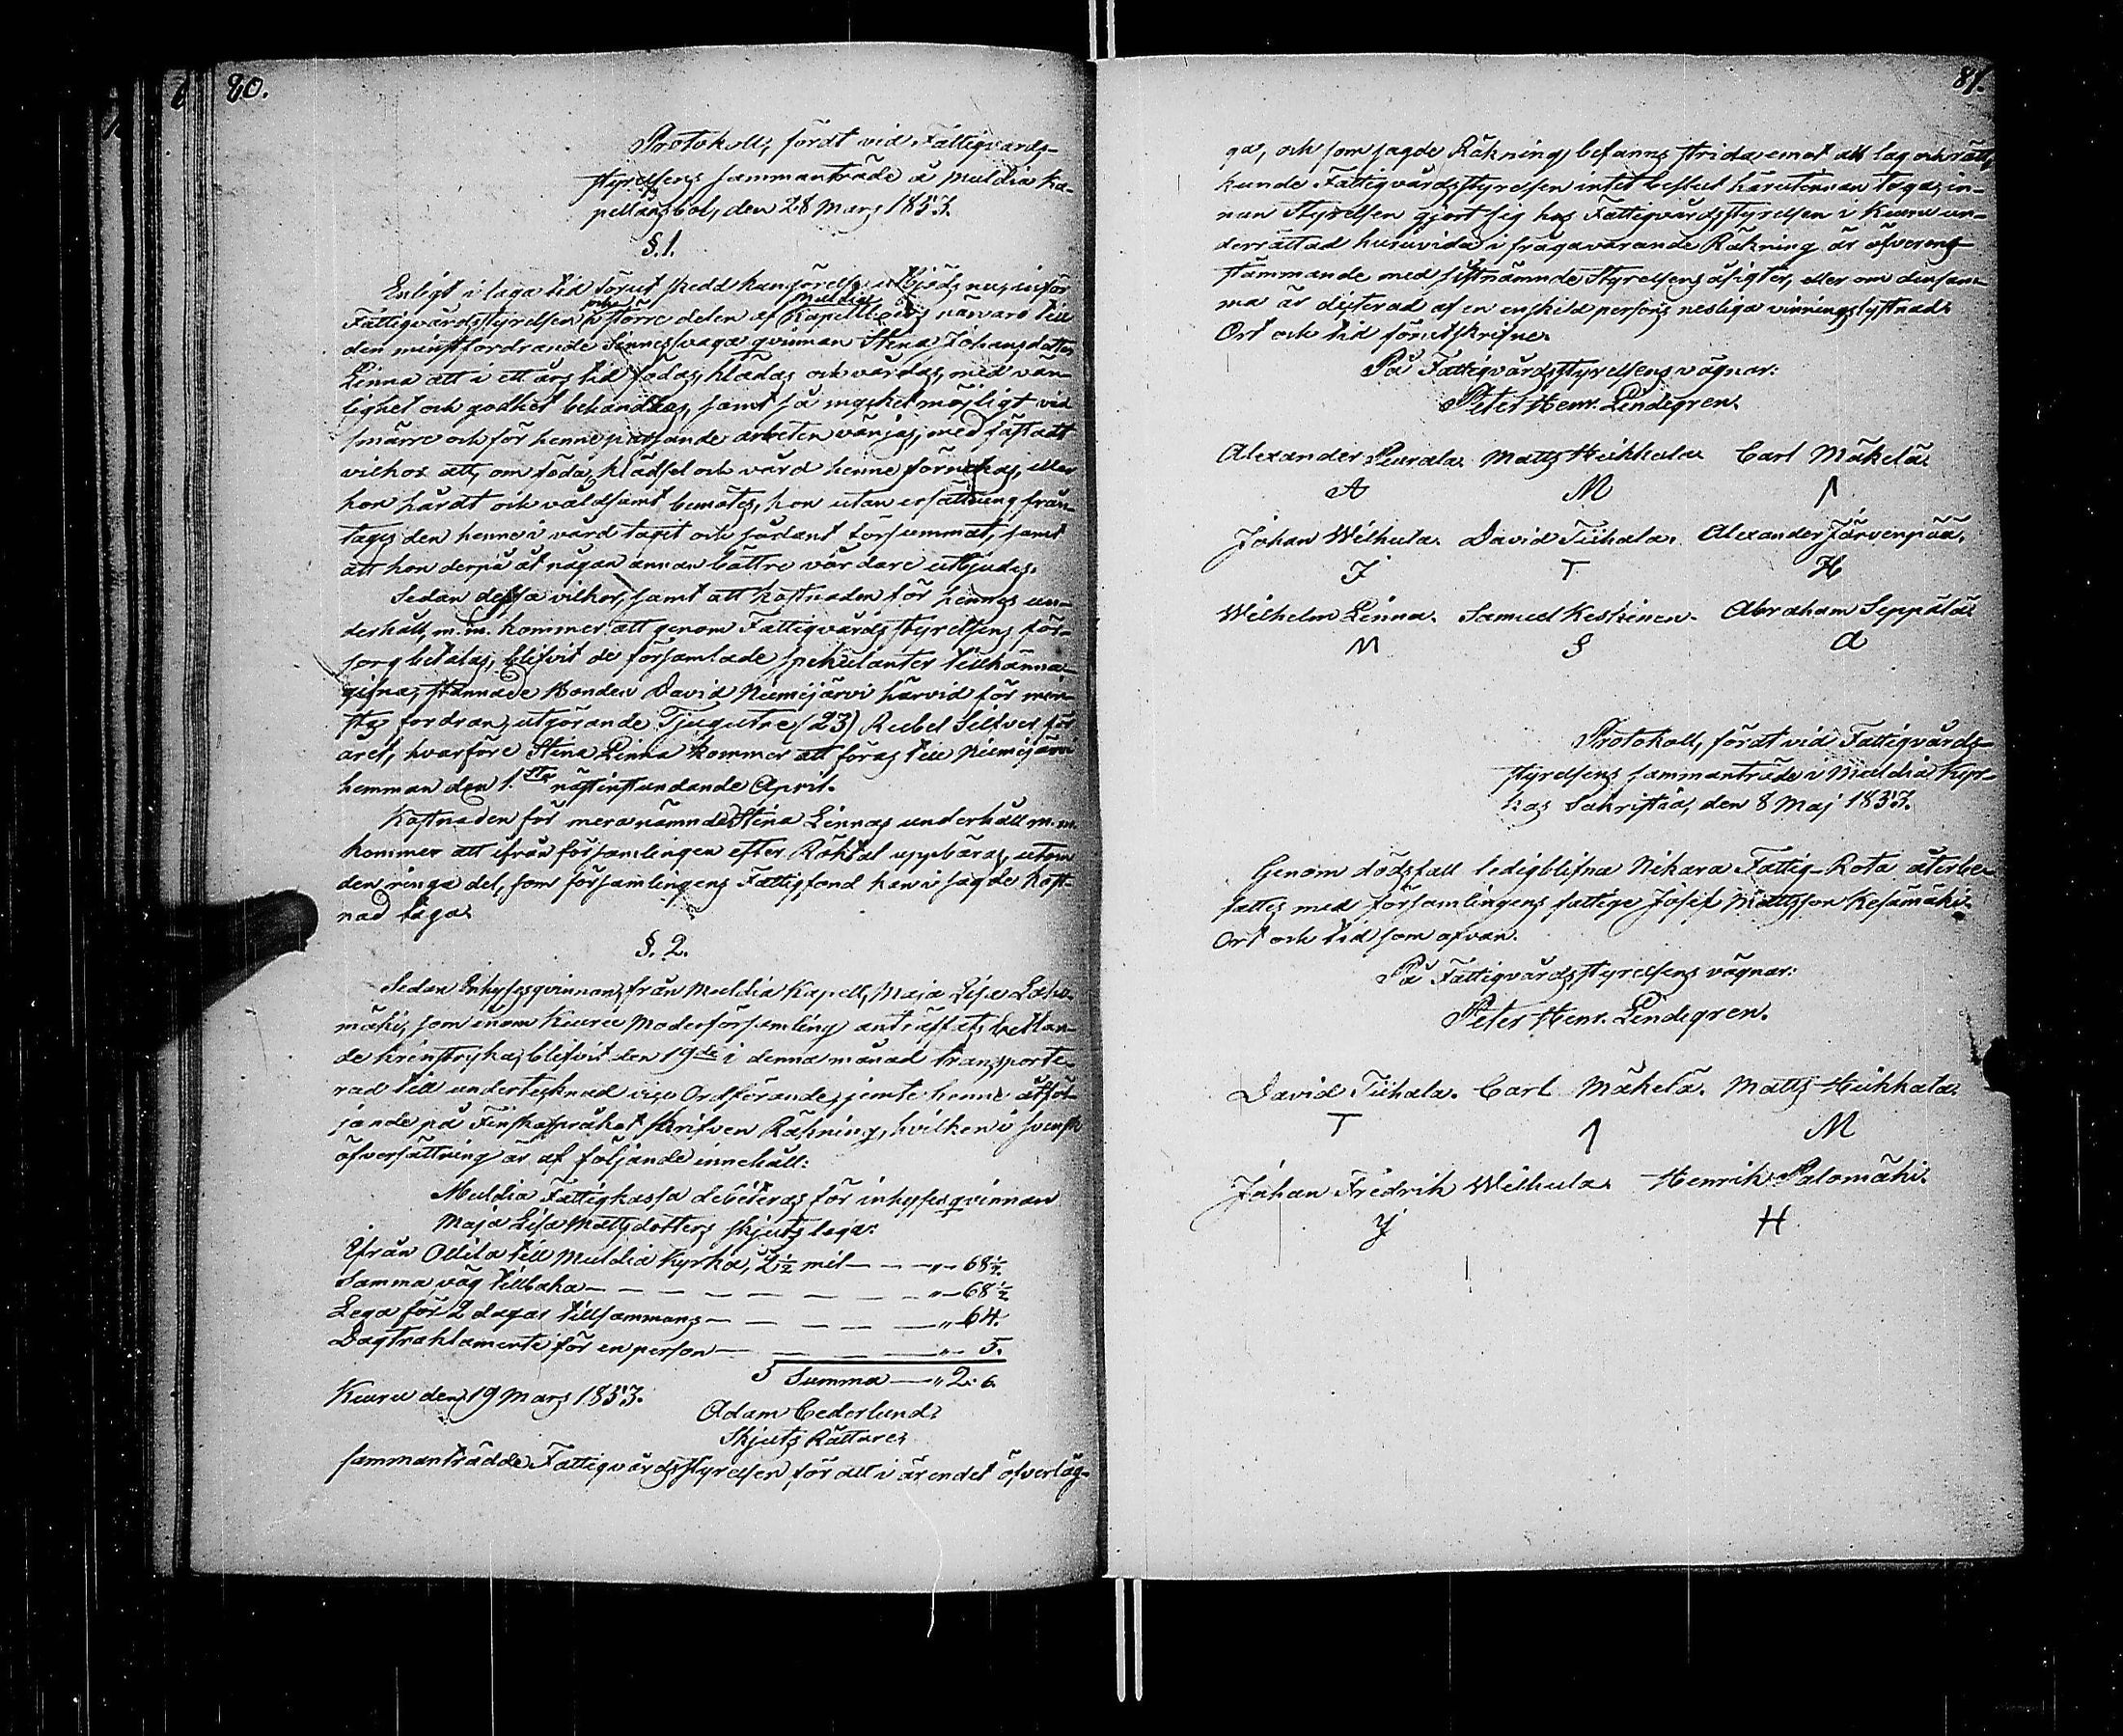 80.
Protokoll, fördt vid Fattigvårds-
styrelsens sammanträde å Muldia Ka-
pellansbol, den 28 Mars 1853.
§.1.
Enligt i laga tid förut skedd kungörelse utbjöds nu, inför
Fattigvårdsstyrelsen och större delen af Muldia Kapellboers närvaro till
den minstfordrande Sinnessvaga qvinnan Stina Johansdotter
Linna att i ett års tid födas, klädas och vårdas, med vän-
lighet och godhet behandlas, samt så mycket möjligt vid
smärre och för henne passande arbeten vänjas; med fästadt
vilkor att, om föda, klädsel och vård henne förnekas, eller
hon hårdt och våldsamt bemötes, hon utan ersättning från-
tages den henne i vård tagit och sådant försummat, samt
att hon derpå åt någon annan bättre vårdare utbjudes.
Sedan dessa vilkor, samt att kostnaden för hennes un-
derhåll, m.m. kommer att genom Fattigvårdsstyrelsens för-
sorg betalas, blifvit de församlade spekulanter tillkänna-
gifna, stannade Bonden David Niemijärvi härvid för min-
sta fordran, utgörande Tjugutre (23) Rubel Silfver för
året, hvarföre Stina Linna kommer att föras till Niemijärvi
hemman den 1.sta nästinstundande April.
Kostnaden för meranämnde Stina Linnas underhåll m.m.
kommer att ifrån församlingen efter Röktal uppbäras, utom
den ringa del, som församlingens Fattigfond kan i sagde kost-
nad taga.
§. 2.
Sedan Inhysesqvinnan från Muldia Kapell, Maja Lisa
mäki, som inom Keuru Moderförsamling anträffats bettlan-
de kringstryka, blifvit den 19de i denna månad transporte-
rad till undertecknad vice Ordförande, jemte henne åtföl-
jande på Finska språket skrifven Räkning, hvilken i svensk
öfversättning är af följande innehåll:
Muldia Fattigkassa debiteras för inhysesqvinnan
Maja Lisa Mattsdotters skjutslega:
Ifrån Ollila till Muldia Kyrka, 2½ mil — — — „ — 68½.
Samma väg tillbaka — — — — — — — „ — 68½
Lega för 2 dagar tillsammans — — — — „ 64.
Dagtraktamente för en person — — — — „ 5.
Summa — „ 2. 6.
Keuru den 19 Mars 1853.
Adam Cederlund,
Skjuts Rättare,
sammanträdde Fattigvårdsstyrelsen för att i ärendet öfverläg-
81.
ga, och som sagde Räkning befanns strida emot all lag och rätt,
kunde Fattigvårdsstyrelsen intet beslut härutinnan taga, in-
nan Styrelsen gjort sig hos Fattigvårdsstyrelsen i Keuru un-
derrättad huruvida ifrågavarande Räkning är öfverens-
stämmande med sistnämnde Styrelsens åsigter, eller om densam-
ma är dicterad af en enskild persons nesliga vinningslystnad.
Ort och tid förutskrifne.
På Fattigvårdsstyrelsens vägnar:
Peter Henr. Lindegren.
Alexander Peurala. Matts Hiikkala. Carl Mäkelä.
A M
Johan Wilhula. David Tiihala. Alexander Järvenpää.
J T H
Wilhelm Linna. Samuel Keskinen. Abraham Seppälä.
M S A
Protokoll, fördt vid Fattigvårds-
styrelsens sammanträde i Muldia Kyr-
kas Sakristia, den 8 Maj 1853.
Genom dödsfall ledigblifna Nikara Fattig-Rota återbe-
sattes med församlingens fattige Josef Mattsson Kesämäki.
Ort och tid som ofvan.
På Fattigvårdsstyrelsens vägnar:
Peter Henr. Lindegren.
David Tiihala. Carl Mäkelä. Matts Hiikkala.
T M
Johan Fredrik Wilhula. Henrik Palomäki.
J H